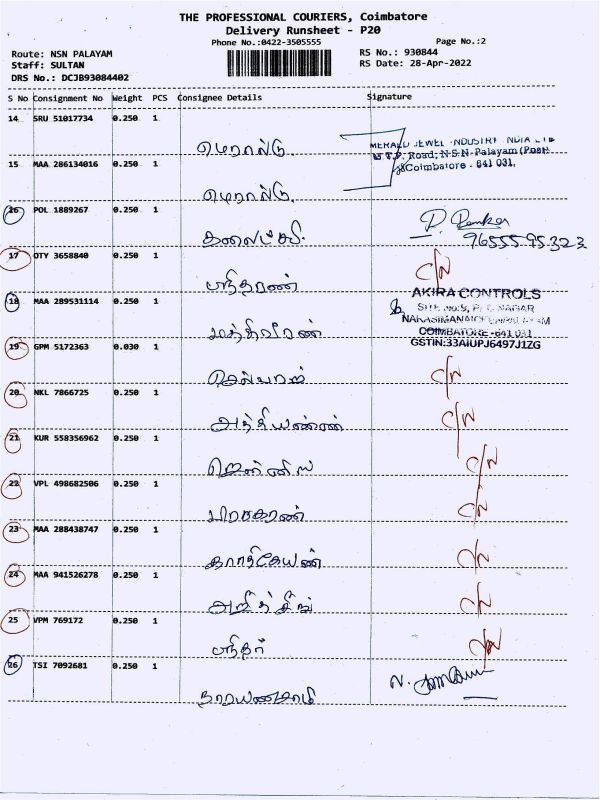 THE PROFESSIONAL COURIERS, Coimbatore
Delivery Runsheet - P20
Phone No.:0422-3505555
Page No.:2
Route: NSN PALAYAM
RS No.: 930844
Staff: SULTAN
RS Date: 28-Apr-2022
DRS No.: DCJB93084402
S No Consignment No Weight PCS Consignee Details Signature
14 SRU 51017734 0.250 1
மெரால்டு
MERALD JEWEL INDUSTRY INDIA LTD
T.P. Road, N.S.N-Palayam (Post)
Coimbatore - 641 031.
15 MAA 286134016 0.250 1
மெரால்டு
16 POL 1889267 0.250 1
9655595323
17 OTY 3658840 0.250 1
ஸ்ரீதரண்
C/N
18 MAA 289531114 0.250 1
AKIRA CONTROLS
COIMBATORE -641 031
GSTIN:33AIUPJ6497J1ZG
19 GPM 5172363 0.030 1
C/N
20 NKL 7866725 0.250 1
C/N
21 KUR 558356962 0.250 1
ஜென்னிஸ்
C/N
22 VPL 498682506 0.250 1
பிரகாரண்
C/N
23 MAA 288438747 0.250 1
கார்திகேயண்
C/N
24 MAA 941526278 0.250 1
C/N
25 VPM 769172 0.250 1
ஸ்ரீதர்
C/N
26 TSI 7092681 0.250 1
நாராயணசாமி